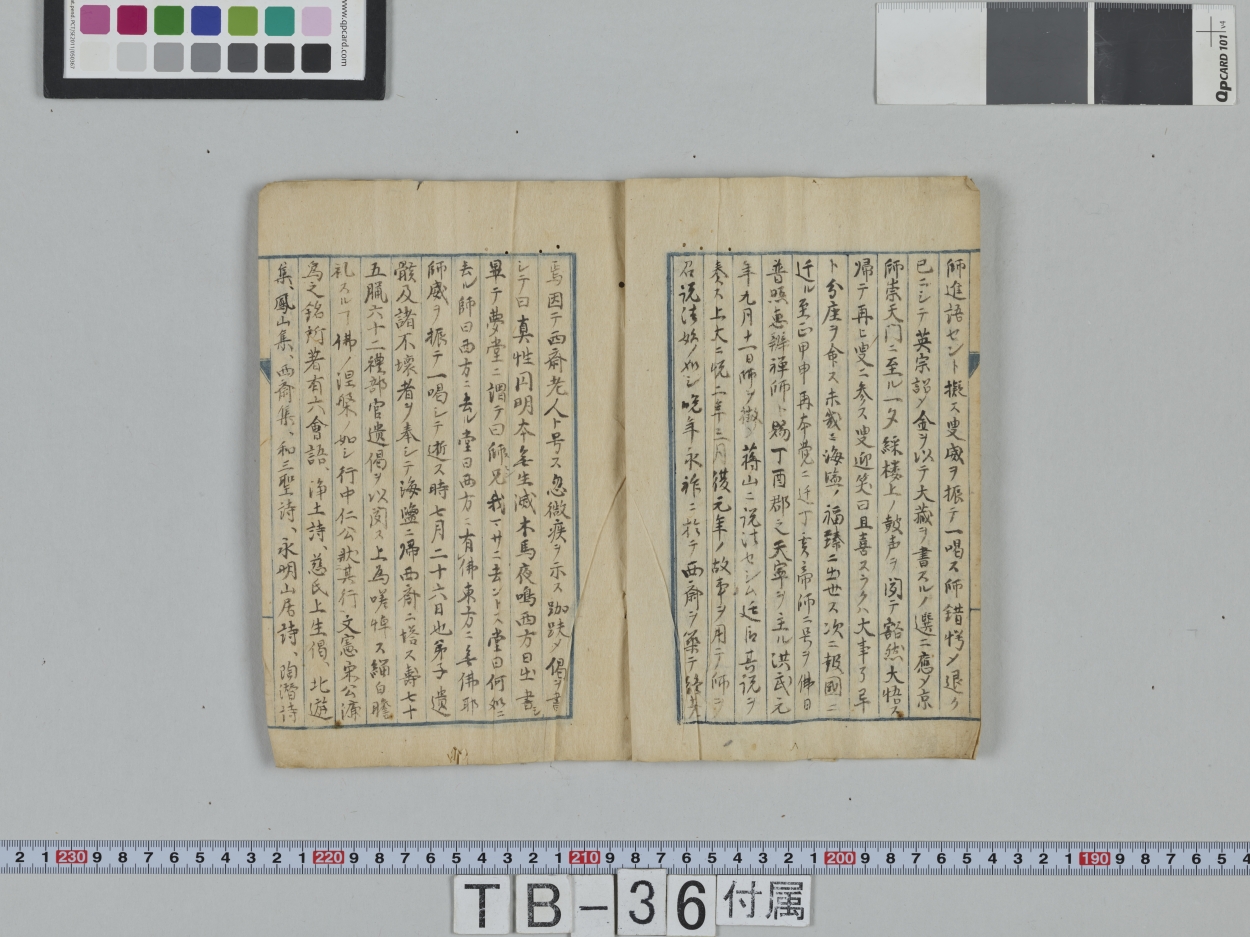 師進語セント擬ス叟威ヲ振テ一喝ス師錯愕メ退ク
已ニシテ英宗詔メ金ヲ以テ大藏ヲ書スルノ選ニ應メ京
師崇天門ニ至ル一夕綵楼上ノ鼓声ヲ聞テ豁然大悟ス
帰テ再ヒ叟ニ参ス叟迎笑曰且喜スラクハ大事了畢
ト分座ヲ命ス未幾ニ海塩ノ福臻ニ出世ス次ニ報國ニ
迁ル至正甲申再本覚ニ迁丁亥帝師ニ号ヲ佛日
普照恵辯禅師ト賜丁酉郡之天寧ヲ主ル洪武元
年九月十一日師ヲ徴シ蒋山ニ説法セシム廷臣其説ヲ
奏ス上大ニ悦二年三月復元年ノ故事ヲ用テ師ヲ
召説法始ノ如シ晩年永祚ニ於テ西齋ヲ築テ終老
焉因テ西齋老人ト号ス忽微疾ヲ示ス跏趺メ偈ヲ書
シテ曰真性円明本無生滅木馬夜鳴西方日出書シ
畢テ夢堂ニ謂テ曰師兄我マサニ去ントス堂曰何処ニ
去ル師曰西方ニ去ル堂曰西方ニ有佛東方ニ無佛耶
師威ヲ振テ一喝シテ逝ス時七月二十六日也弟子遺
骸及諸不壊者ヲ奉シテ海鹽ニ帰西齋ニ塔ス壽七十
五臘六十二禮部官遺偈ヲ以聞ス上為嗟悼ス緇白瞻
礼スルヿ佛ノ涅槃ノ如シ行中仁公歎其行文憲宋公濂
為之銘所著有六會語、浄土詩、慈氏上生偈、北遊
集、鳳山集、西齋集、和三聖詩、永明山居詩、陶潜詩
www.qpcard.com
QPCARD 101 v4
2 1 230 9 8 7 6 5 4 3 2 1 220 9 8 7 6 5 4 3 2 1 210 9 8 7 6 5 4 3 2 1 200 9 8 7 6 5 4 3 2 1 190 9 8 7 6 5 4
TB-36 付属